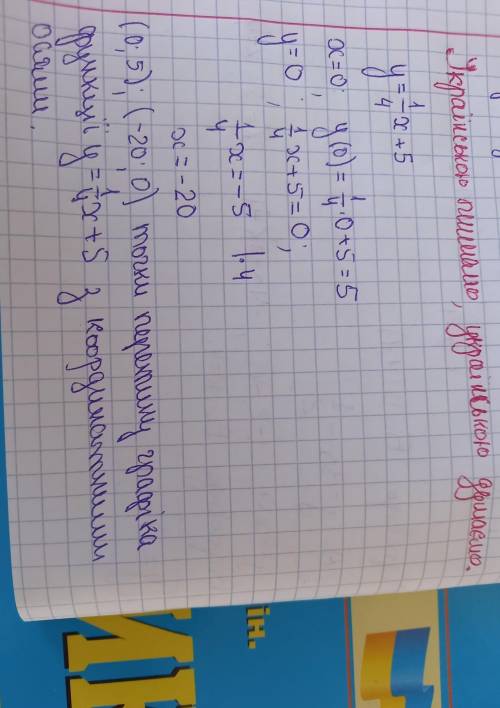 Українською пишемо, українською думаємо.
y = 1/4 x + 5
x = 0; y(0) = 1/4 · 0 + 5 = 5
y = 0; 1/4 x + 5 = 0;
1/4 x = -5 | · 4
x = -20
(0; 5); (-20; 0) точки перетину графіка
функції y = 1/4 x + 5 з координатними
осями.
ін.